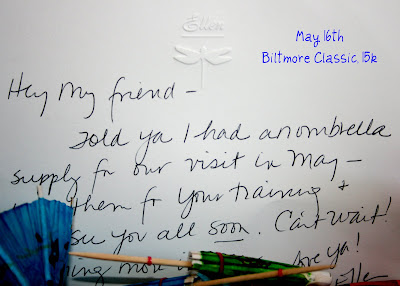 Ellen
May 16th
Biltmore Classic, 15k
Hey My friend -
Told ya I had an ombrella
supply for our visit in May -
them for your training +
see you all soon. Can't Wait!
more
love ya!
Ellen